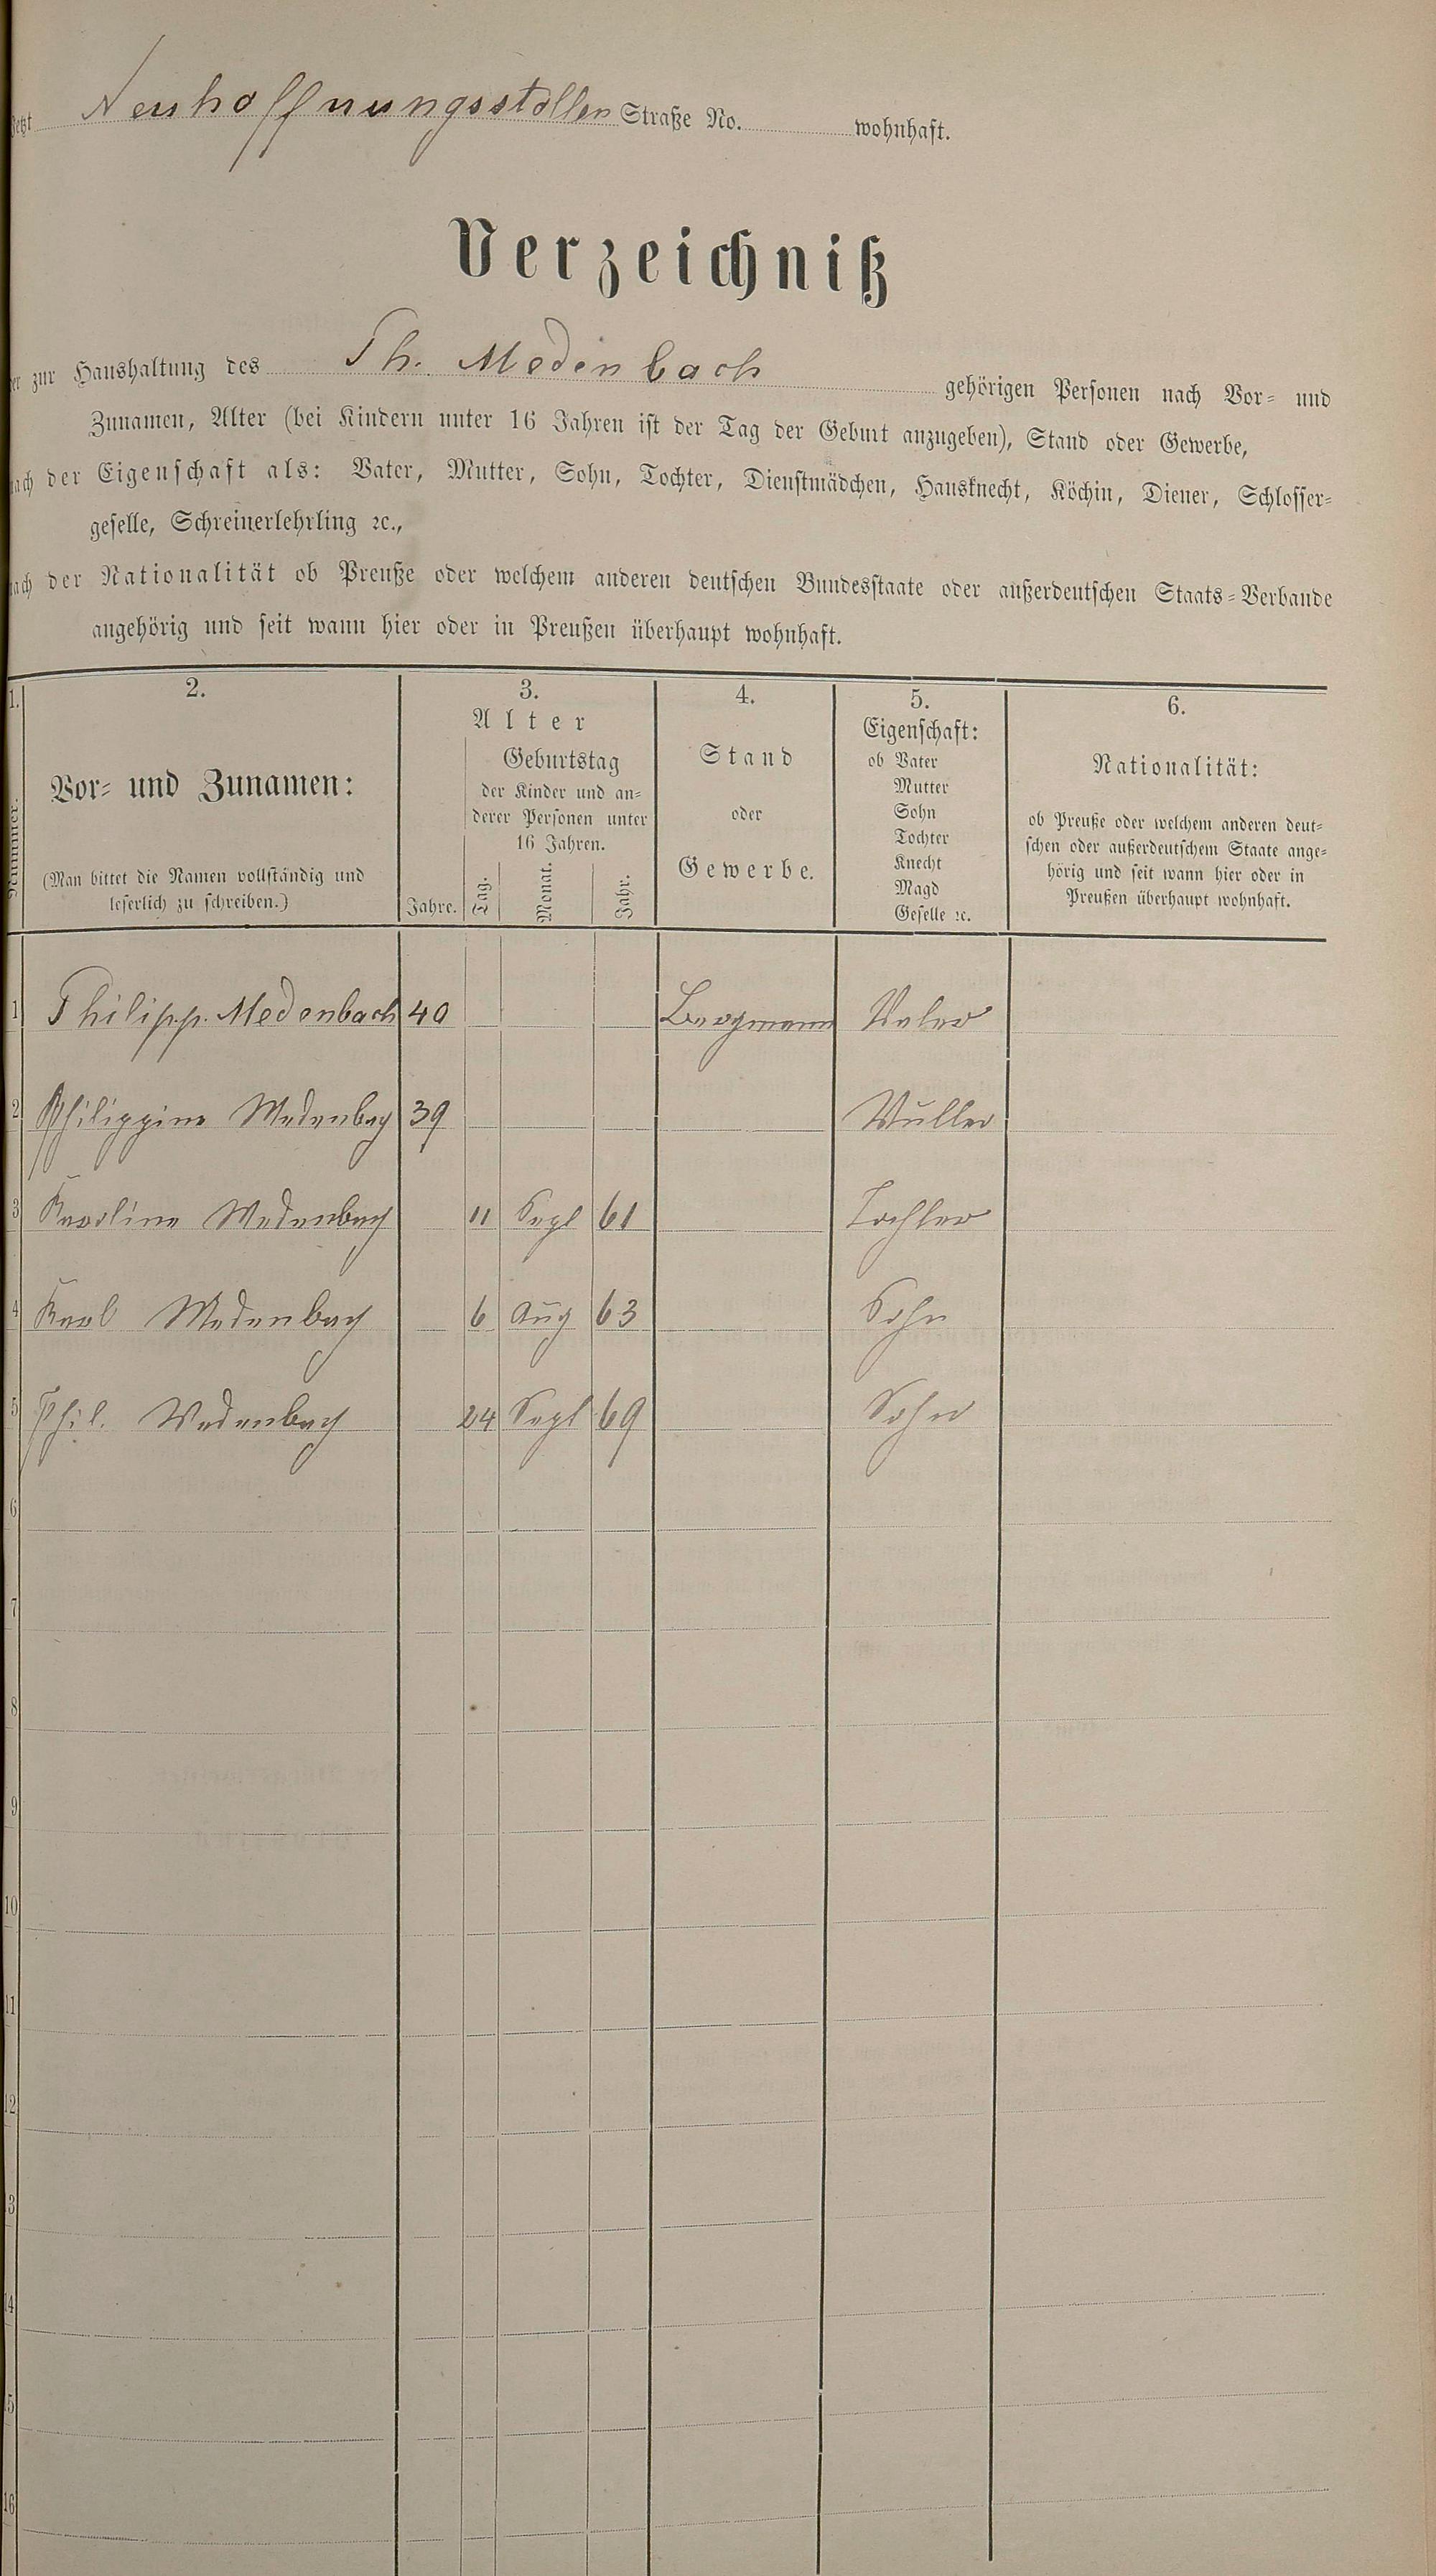 Jetzt Neuhoffnungsstollen Straße No. wohnhaft.
Verzeichniß
der zur Haushaltung des Ph. Medenbach gehörigen Personen nach Vor- und
Zunamen, Alter (bei Kindern unter 16 Jahren ist der Tag der Geburt anzugeben), Stand oder Gewerbe,
nach der Eigenschaft als: Vater, Mutter, Sohn, Tochter, Dienstmädchen, Hausknecht, Köchin, Diener, Schlosser-
geselle, Schreinerlehrling ꝛc.,
nach der Nationalität ob Preuße oder welchem anderen deutschen Bundesstaate oder außerdeutschen Staats-Verbande
angehörig und seit wann hier oder in Preußen überhaupt wohnhaft.
1.
Nummer.
2.
Vor- und Zunamen:
(Man bittet die Namen vollständig und
leserlich zu schreiben.)
3.
Alter
Jahre.
Geburtstag
der Kinder und an-
derer Personen unter
16 Jahren.
Tag.
Monat.
Jahr.
4.
Stand
oder
Gewerbe.
5.
Eigenschaft:
ob Vater
Mutter
Sohn
Tochter
Knecht
Magd
Geselle ꝛc.
6.
Nationalität:
ob Preuße oder welchem anderen deut-
schen oder außerdeutschem Staate ange-
hörig und seit wann hier oder in
Preußen überhaupt wohnhaft.
1 Philipp. Medenbach 40 Bergmann Vater
2 Philippine Medenbach 39 Mutter
3 Karoline Medenbach 11 Sept 61 Tochter
4 Karl Medenbach 6 Aug 63 Sohn
5 Phil. Medenbach 24 Sept 69 Sohn
6
7
8
9
10
11
12
13
14
15
16